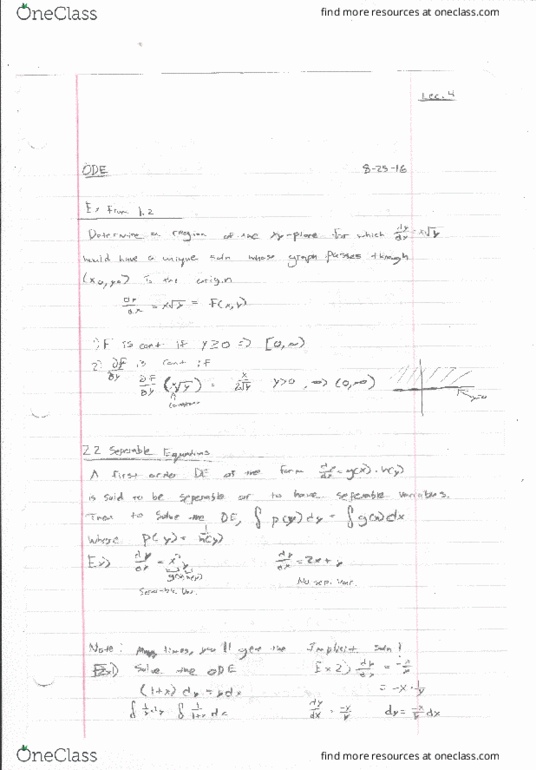 OneClass
find more resources at oneclass.com
Lec. 4
ODE 8-25-16
Ex From 1.2
Determine a region of the xy-plane for which dy/dx = x√y
would have a unique soln whose graph passes through
(x0, y0) is the origin
= x√y = F(x, y)
1) F is cont if y≥0 => [0,∞)
2) ∂F/∂y is cont if
∂F/∂y (x√y) = x/2√y y>0, => (0,∞)
2.2 Seperable Equations
A first order DE of the form dy/dx = g(x)·h(y)
is said to be seperable or to have seperable variables.
Then to solve the DE, ∫ p(y) dy = ∫ g(x) dx
where p(y) = 1/h(y)
Ex) dy/dx = dy/dx = 2x + y
g(x) h(y) No sep. var.
Note: times, you'll get the Implicit soln!
Ex 1) Solve the ODE Ex 2) dy/dx = -x/y
(1+x) dy = y dx = -x · 1/y
∫ 1/y dy ∫ 1/1+x dx dy/dx = -x/y dy = -x/y dx
OneClass
find more resources at oneclass.com